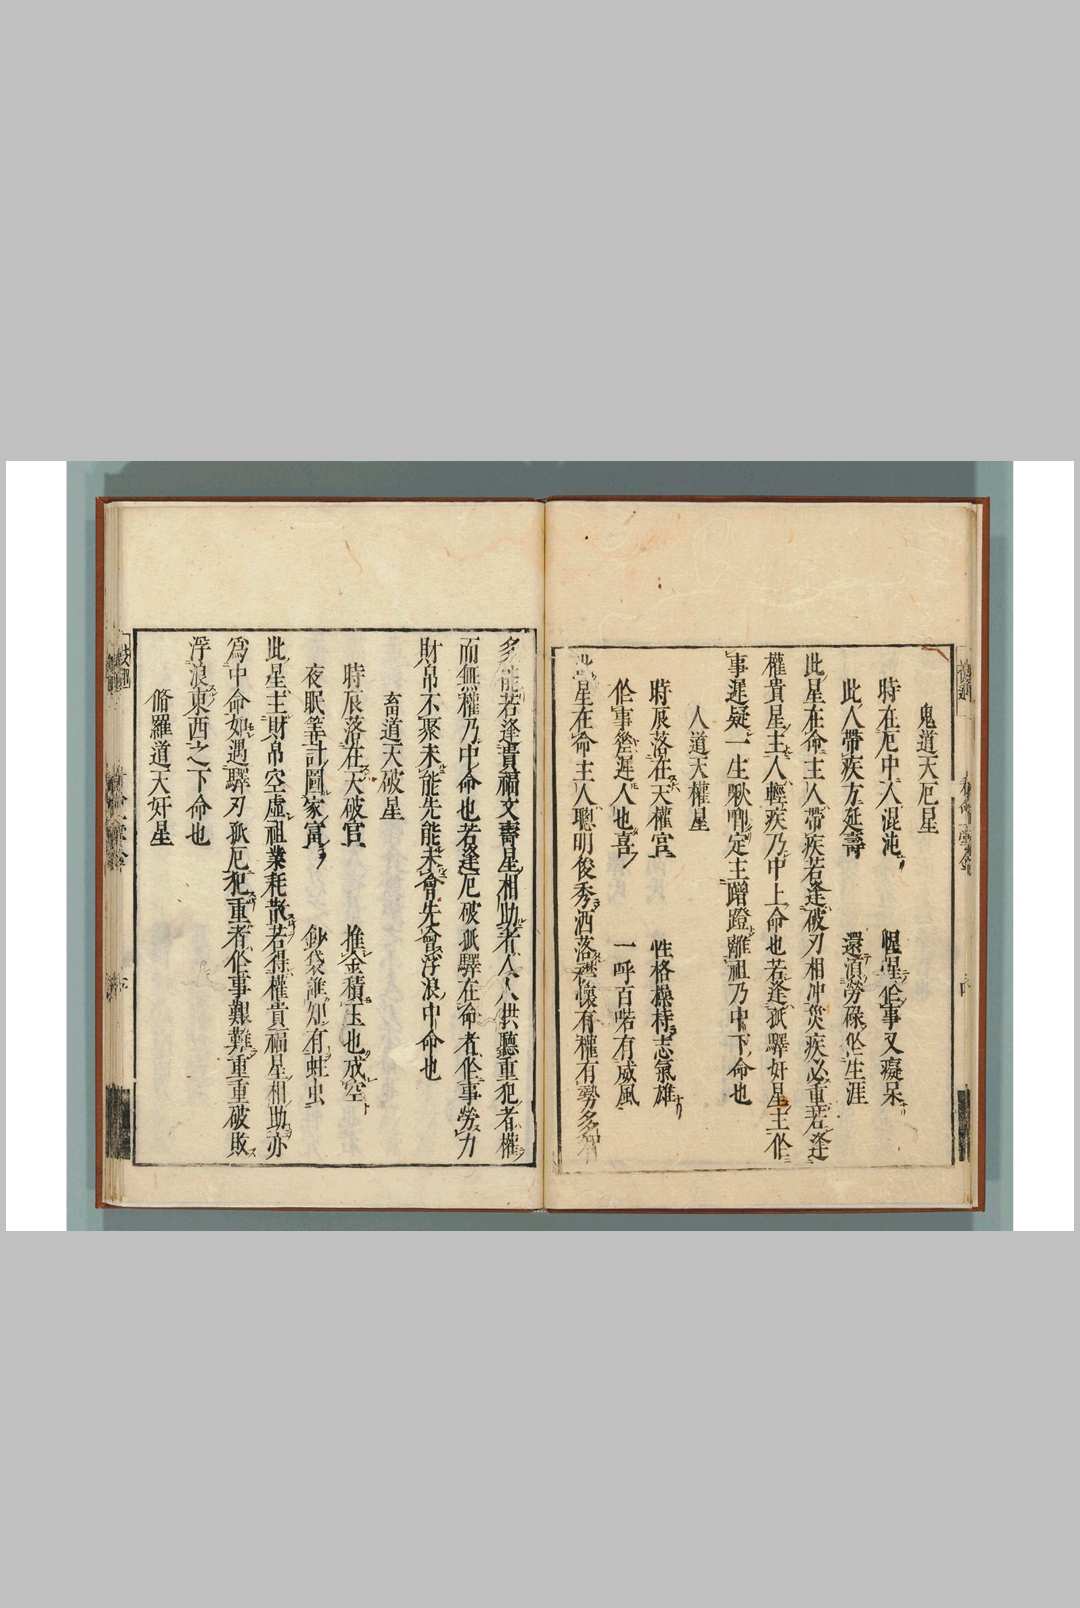 鬼道天厄星
時在厄中人混沌 惺惺作事又癡呆
此人帶疾方延壽 還須勞碌生涯
此星在命主人帶疾若逢破刃相冲災疾必重若逢
權貴星主人輕疾乃中上命也若逢孤驛奸星主作
事遲疑一生啾唧定主蹭蹬離祖乃中下命也
人道天權星
時辰落在天權宮 性格操持志氣雄
作事遲人也喜 一呼百喏有威風
此星在命主人聰明俊秀洒落襟懷有權有勢多
多能若逢貴福文壽星相助者人人拱聽重犯者權
而無權乃中命也若逢厄破孤驛在命者作事勞力
財帛不聚未能先能未會先會浮浪中命也
畜道天破星
時辰落在天破宮 推金積玉也成空
夜眠筭計圖家富 鈔袋誰知有蛀虫
此星主財帛空虛祖業耗散若得權貴福星相助亦
為中命如遇驛刃孤厄犯重者作事艱難重重破敗
浮浪東西之下命也
脩羅道天奸星